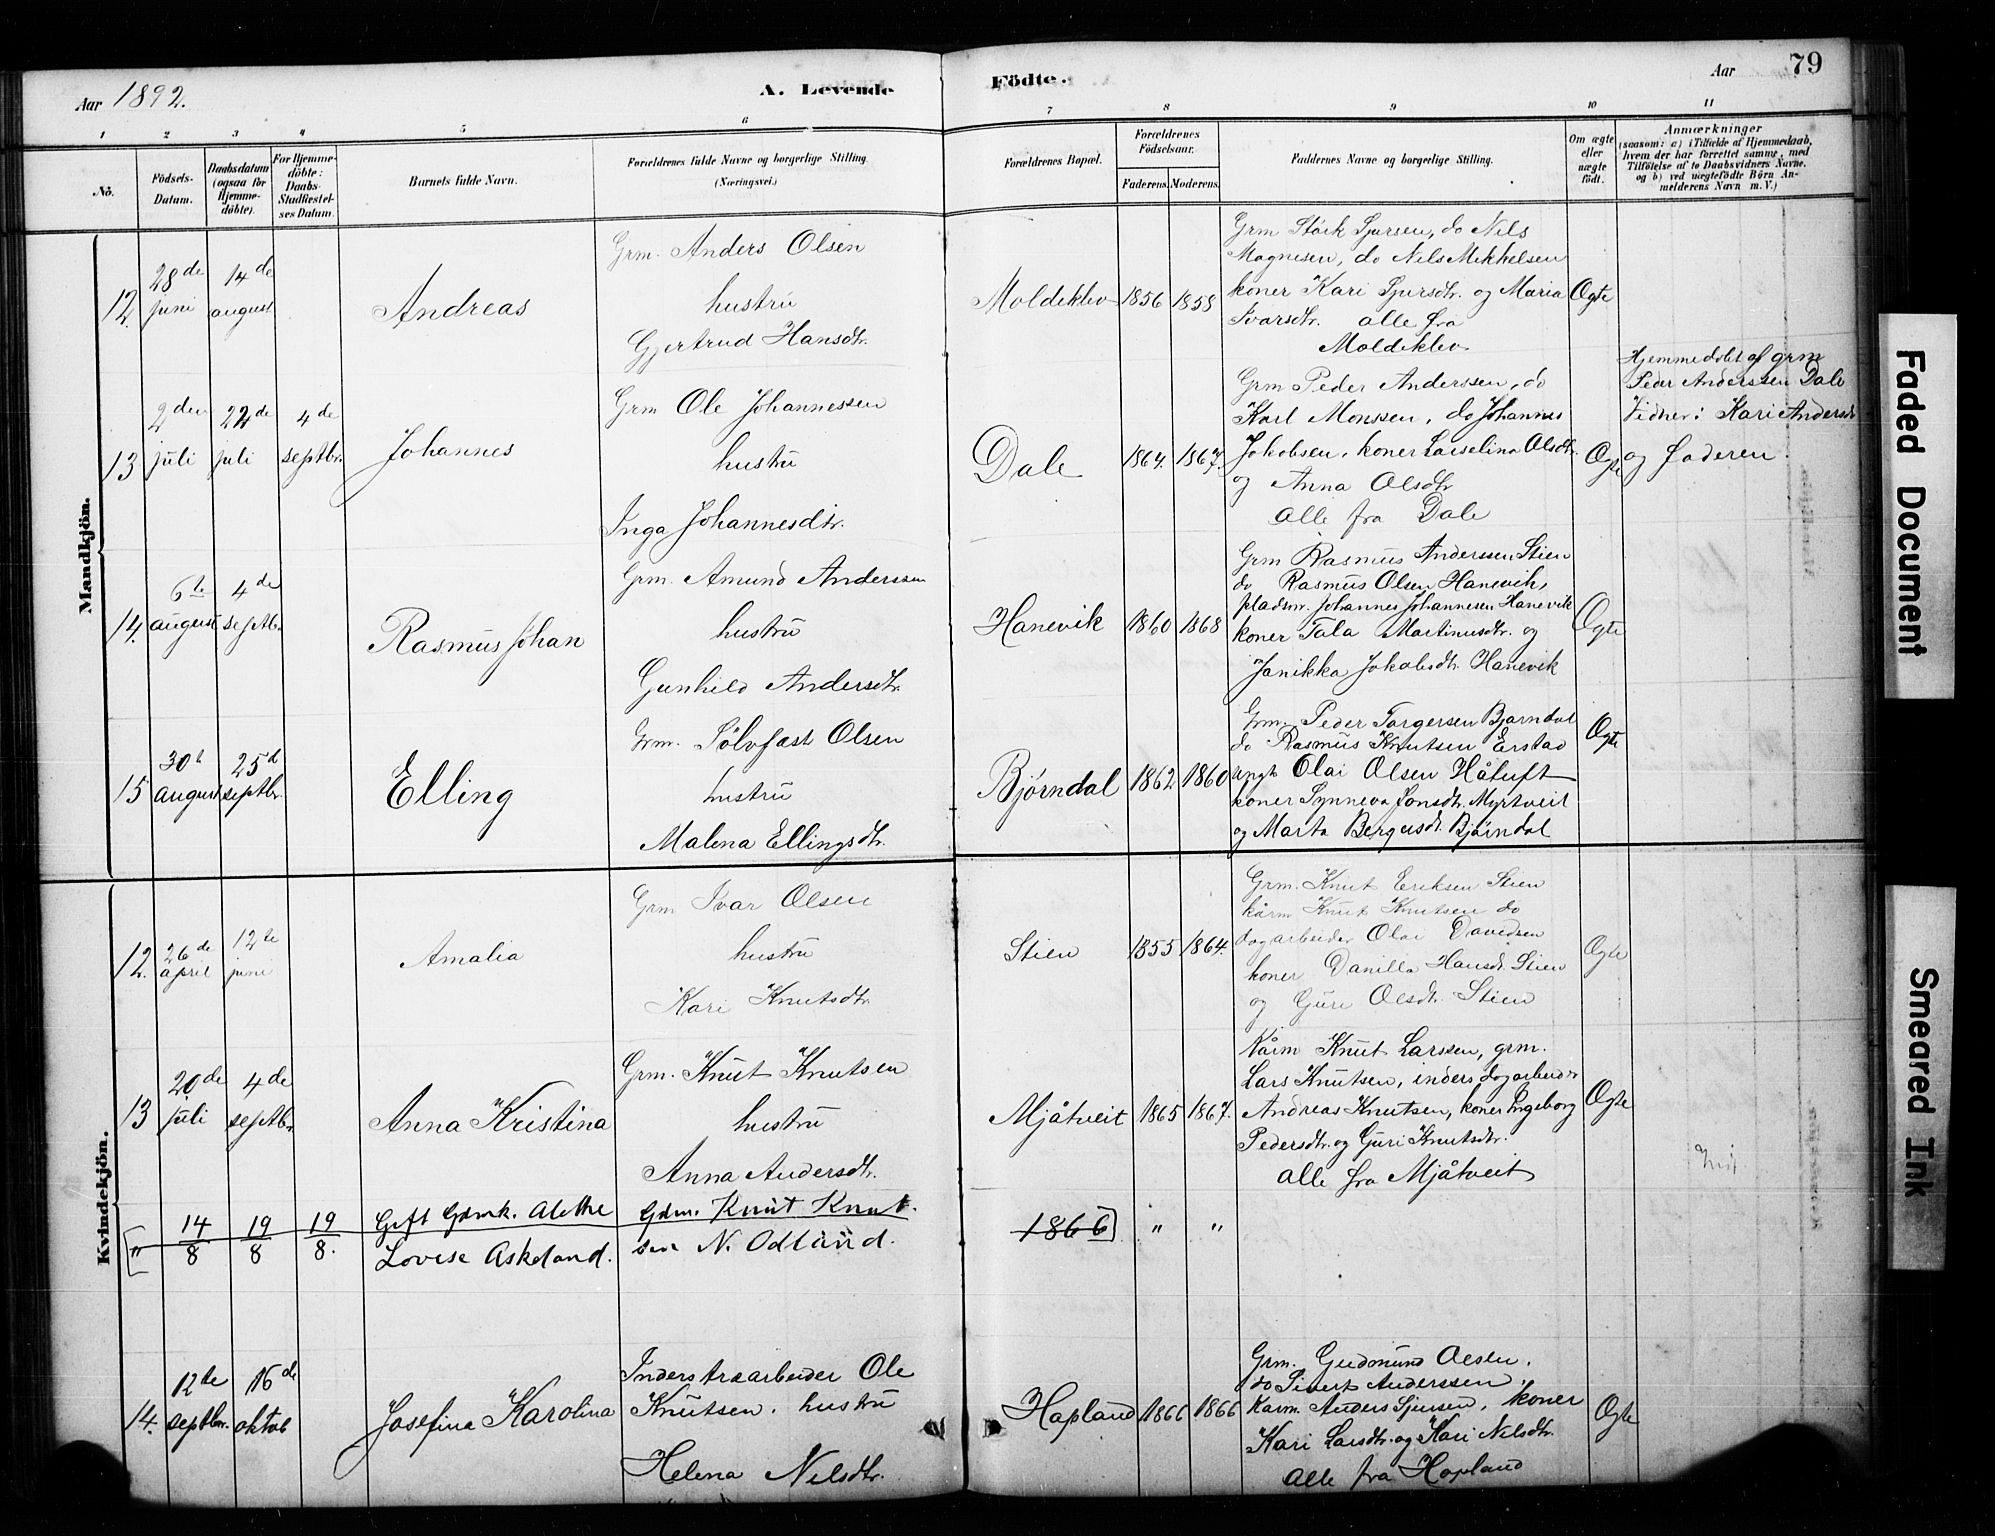 Aar 1892.
A. Levende
Födte.
Aar
79
1 2 3 4 5 6 7 8 9 10 11
No.
Födsels-Datum.
Daabsdatum (ogsaa for Hjemme-döbte).
For Hjemme-döbte: Daabs-Stadfæstel-ses Datum.
Barnets fulde Navn.
Forældrenes fulde Navne og borgerlige Stilling.
(Næringsvei.)
Forældrenes Bopæl.
Forældrenes Födselsaar.
Faderens. Moderens.
Faddernes Navne og borgerlige Stilling.
Om ægte eller uægte født.
Anmærkninger
(saasom: a) i Tilfælde af Hjemmedaab, hvem der har forrettet samme, med Tilføielse af to Daabsvidners Navne, og b) ved uægtefødte Börn An-melderens Navn m. V.)
Mandkjön.
12.
28de juni
14de august
Andreas
Grm. Anders Olsen
hustru
Gjertrud Hansdtr.
Moldeklev
1856
1858
Grm Stark Sjursen, do Nils
Magnesen, do Nils Mikkelsen
koner Kari Sjursdtr. og Maria
Ivarsdtr. alle fra
Moldeklev
Ægte
13
2den juli
22de juli
4de septbr.
Johannes
Grm Ole Johannessen
hustru
Inga Johannesdtr.
Dale
1864.
1867.
Grm Peder Anderssen, do
Karl Monssen, do Johannes
Jakobsen, koner Larselina Olsdtr.
og Anna Olsdtr
alle fra Dale
Ægte
Hjemmedøbt af grm
Peder Anderssen Dale
Vidner: Kari Andersdr
og faderen.
14.
6te august
4de septbr
Rasmus Johan
Grm. Amund Anderssen
hustru
Gunhild Andersdtr.
Hanevik
1860
1868
Grm Rasmus Anderssen Stien
do Rasmus Olsen Hanevik,
pladsm. Johannes Johannesen Hanevik
koner Tala Martinusdtr. og
Janikka Jakobsdtr. Hanevik
Ægte
15
30t august
25d septbr.
Elling
Grm. Sölvfast Olsen
hustru
Malena Ellingsdtr.
Bjørndal
1862
1860
Grm. Peder Torgersen Bjørndal
do Rasmus Knutsen Erstad
ungk Olai Olsen Håtuft
koner Synneva Jonsdtr. Myrtveit
og Marta Bergesdtr. Bjørndal
Ægte
Kvindekjön.
12.
26de april
12te juni
Amalia
Grm Ivar Olsen
hustru
Kari Knutsdtr
Stien
1855
1864.
Grm. Knut Eriksen Stien
kårm Knut Knutsen do
dagarbeider Olai Davidsen
koner Danilla Hansdr. Stien
og Guri Olsdtr. Stien
Ægte
13
20de juli
4de septbr
Anna Kristina
Grm. Knut Knutsen
hustru
Anna Andersdtr.
Mjåtveit
1865
1867.
Kårm Knut Larssen, grm.
Lars Knutsen, inders dagarbeider
Andreas Knutsen, koner Ingeborg
Pedersdtr. og Guri Knutsdtr.
alle fra Mjåtveit
Ægte
"
14/8
19/8
19/8.
Gift Gdmk. Alethe
Lovise Askeland.
Gdm. Knut Knut-
sen N. Odland.
1866
" "
14.
12te septbr.
16de oktob
Josefina Karolina
Inderstraarbeider Ole
Knutsen. hustru
Helena Nilsdtr.
Hopland
1866
1866
Grm. Gudmund Olsen.
do Sivert Anderssen.
Karm. Anders Sjursen, koner
Kari Larsdtr. og Kari Nilsdtr.
alle fra Hopland
Ægte
Faded Document
Smeared Ink